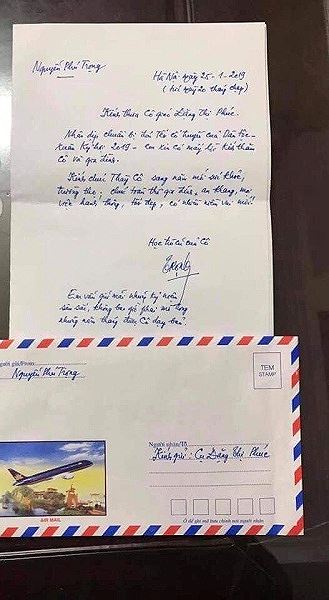 Nguyễn Phú Trọng
Hà Nội ngày 25-1-2019
(tức ngày 20 tháng chạp)
Kính thưa Cô giáo Đặng Thị Phúc.
Nhân dịp chuẩn bị đón Tết cổ truyền của Dân tộc -
Xuân Kỷ hợi 2019 - em xin có mấy lời kính thăm
Cô và gia đình.
Kính chúc Thầy Cô sang năm mới sức khỏe,
trường thọ; chúc toàn thể gia đình an khang, mọi
việc hanh thông, tốt đẹp, có nhiều niềm vui mới!
Học trò cũ của Cô
Trọng
Em vẫn giữ mãi những kỷ niệm
sâu sắc, không bao giờ phai mờ trong
những năm tháng được Cô dạy bảo.
Người gửi/From:
Nguyễn Phú Trọng
TEM
STAMP
Người nhận/To:
Kính gửi: Cụ Đặng Thị Phúc
AIR MAIL
Ô để ghi mã bưu chính nơi người nhận